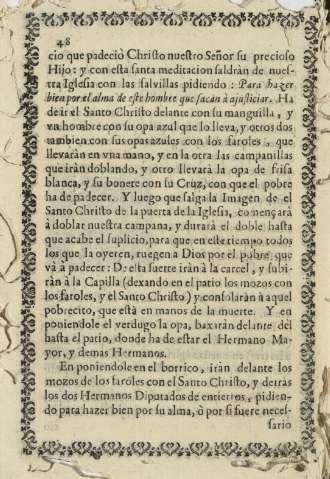 48
cio que padeciò Christo nuestro Señor su precioso
Hijo: y con esta santa meditacion saldràn de nues-
tra Iglesia con las salvillas pidiendo: Para hazer
bien por el alma de este hombre que sacan à ajusticiar. Ha
de ir el Santo Christo delante con su manguilla, y
vn hombre con su opa azul que lo lleva, y otros dos
tambien con sus opas azules con los faroles, que
llevaràn en vna mano, y en la otra las campanillas
que iràn doblando, y otro llevarà la opa de frisa
blanca, y su bonete con su Cruz, con que el pobre
ha de padecer. Y luego que salga la Imagen de el
Santo Christo de la puerta de la Iglesia, començarà
à doblar nuestra campana, y durarà el doble hasta
que acabe el suplicio, para que en este tiempo todos
los que la oyeren, rueguen a Dios por el pobre que
và à padecer: De esta suerte iràn à la carcel, y subi-
ràn à la Capilla (dexando en el patio los mozos con
los faroles, y el Santo Christo) y consolaràn à aquel
pobrecito, que està en manos de la muerte. Y en
poniendole el verdugo la opa, baxaràn delante dèl
hasta el patio, donde ha de estar el Hermano Ma-
yor, y demas Hermanos.
En poniendole en el borrico, iràn delante los
mozos de los faroles con el Santo Christo, y detràs
los dos Hermanos Diputados de entierros, pidien-
do para hazer bien por su alma, ò por si fuere neces-
sario